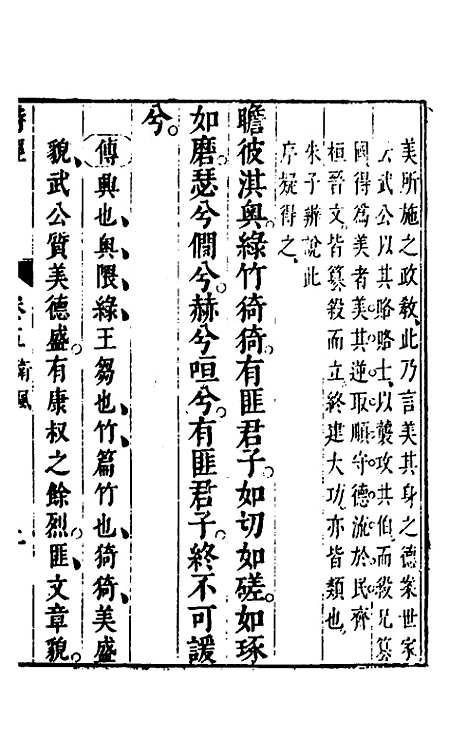 美所施之政教此乃言美其身之德案世家
武公以其賂賂士以襲攻共伯而殺兄篡
國得為美者美其逆取順守德流於民齊
桓晉文皆篡殺而立終建大功亦皆類也
朱子辨說此
序疑得之
瞻彼淇奧。綠竹猗猗。有匪君子。如切如磋。如琢
如磨。瑟兮僩兮。赫兮咺兮。有匪君子。終不可諼
兮。
傳興也、奧、隈、綠、王芻也、竹、篇竹也、猗猗、美盛
貌、武公質美德盛。有康叔之餘烈。匪、文章貌。
詩經 卷五 衛風